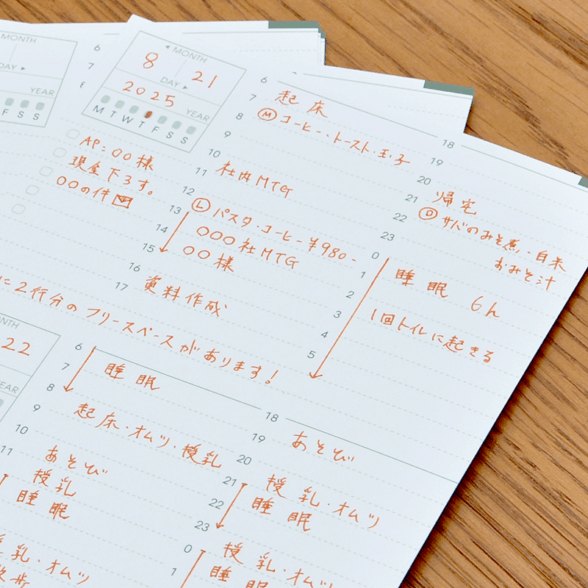 MONTH
8 21
DAY
2025
YEAR
M T W T F S S
AP:〇〇様
現金下ろす。
〇〇の件
6
7 起床
8 Ⓜコーヒー・トースト・玉子
9
10
11 社内MTG
12
13 Ⓛパスタ・コーヒー ¥980-
14 〇〇〇社MTG
15 〇〇様
16
17 資料作成
18
19
20
21 帰宅
22 Ⓓサバのみそ煮・白米
おみそ汁
23
0
1 睡眠 6h
2
3 1回トイレに起きる
4
5
に2行分のフリースペースがあります!
MONTH
22
6
7 睡眠
8
9 起床・オムツ 授乳
10
11 あそび
授乳
睡眠
乳・オムツ
散歩
18
19 あそび
20
21 授乳・オムツ
22 睡眠
23
0 授乳・オムツ
1 睡眠
MONTH
DAY
YEAR
F S S
6
7